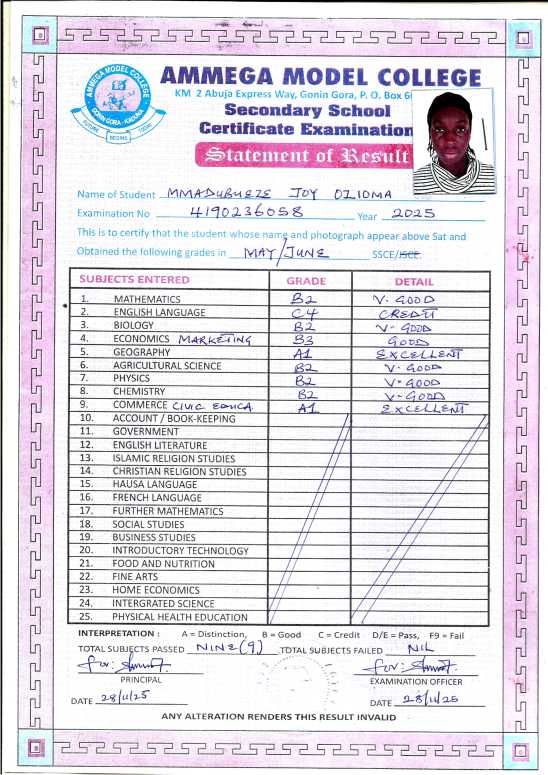 AMMEGA MODEL COLLEGE
GONIN GORA - KADUNA
FUTURE BEGINS TODAY
AMMEGA MODEL COLLEGE
KM 2 Abuja Express Way, Gonin Gora, P. O. Box
Secondary School
Certificate Examination
Statement of Result
Name of Student MMADUBUEZE JOY OZIOMA
Examination No 4190236058 Year 2025
This is to certify that the student whose name and photograph appear above Sat and
Obtained the following grades in MAY/JUNE SSCE/GCE
SUBJECTS ENTERED GRADE DETAIL
1. MATHEMATICS B2 V. GOOD
2. ENGLISH LANGUAGE C4 CREDIT
3. BIOLOGY B2 V-GOOD
4. ECONOMICS MARKETING B3 GOOD
5. GEOGRAPHY A1 EXCELLENT
6. AGRICULTURAL SCIENCE B2 V. GOOD
7. PHYSICS B2 V-GOOD
8. CHEMISTRY B2 V-GOOD
9. COMMERCE CIVIC EDUCA A1 EXCELLENT
10. ACCOUNT / BOOK-KEEPING
11. GOVERNMENT
12. ENGLISH LITERATURE
13. ISLAMIC RELIGION STUDIES
14. CHRISTIAN RELIGION STUDIES
15. HAUSA LANGUAGE
16. FRENCH LANGUAGE
17. FURTHER MATHEMATICS
18. SOCIAL STUDIES
19. BUSINESS STUDIES
20. INTRODUCTORY TECHNOLOGY
21. FOOD AND NUTRITION
22. FINE ARTS
23. HOME ECONOMICS
24. INTERGRATED SCIENCE
25. PHYSICAL HEALTH EDUCATION
INTERPRETATION : A = Distinction, B = Good C = Credit D/E = Pass, F9 = Fail
TOTAL SUBJECTS PASSED NINE (9) TOTAL SUBJECTS FAILED NIL
for: for:
PRINCIPAL EXAMINATION OFFICER
DATE 28/11/25 DATE 28/11/25
ANY ALTERATION RENDERS THIS RESULT INVALID